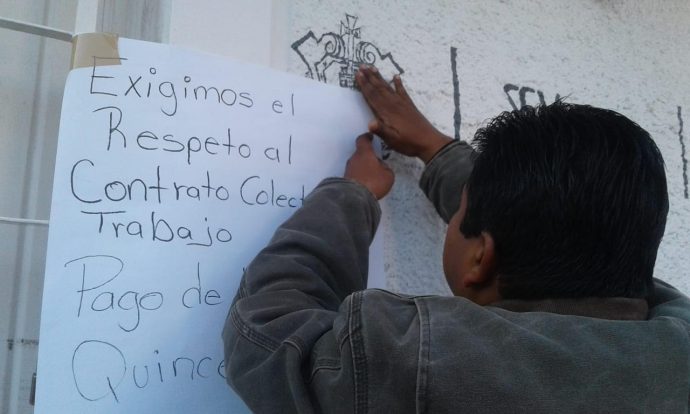 Exigimos el
Respeto al
Contrato Colect
Trabajo
Pago de
Quince